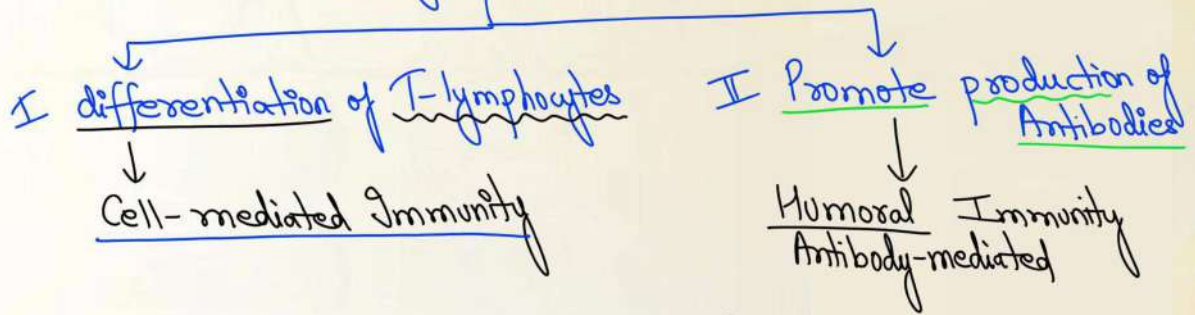 I differentiation of T-lymphocytes
Cell-mediated Immunity
II Promote production of
Antibodies
Humoral Immunity
Antibody-mediated